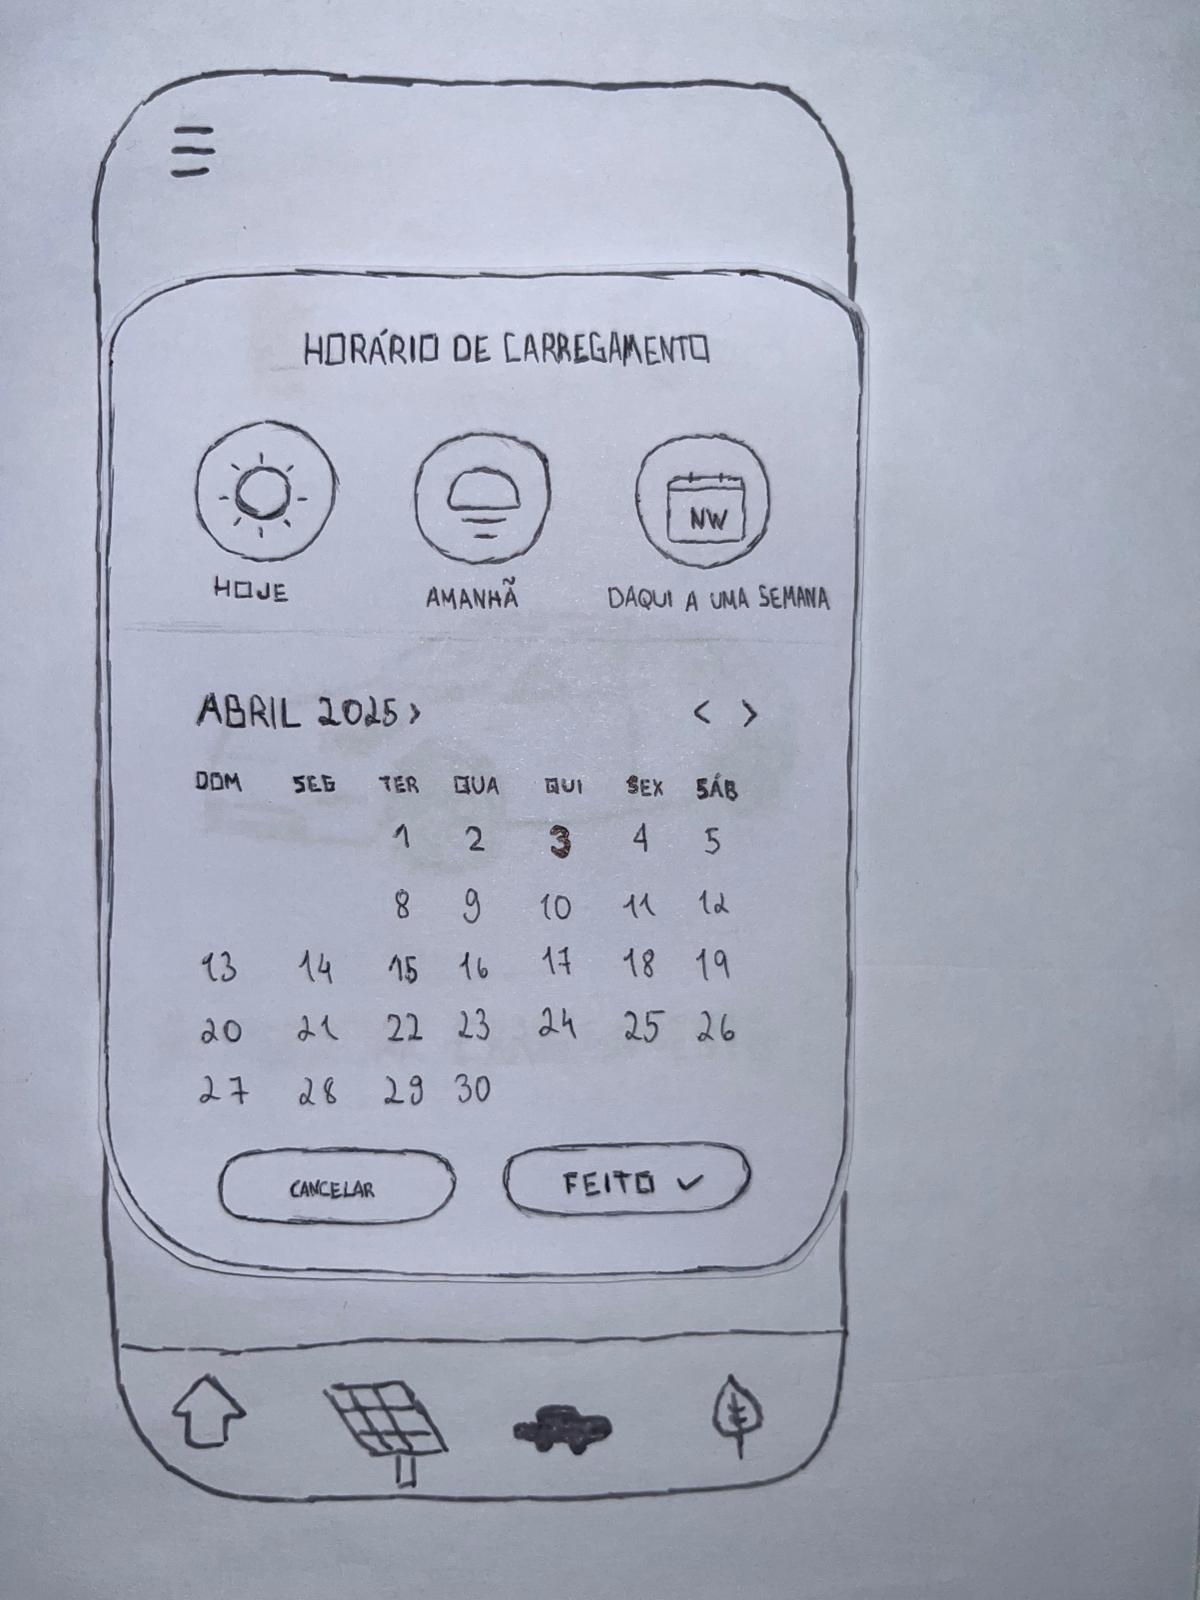 HORÁRIO DE CARREGAMENTO
NW
HOJE AMANHÃ DAQUI A UMA SEMANA
ABRIL 2025 › < >
DOM SEG TER QUA QUI SEX SÁB
1 2 3 4 5
8 9 10 11 12
13 14 15 16 17 18 19
20 21 22 23 24 25 26
27 28 29 30
CANCELAR FEITO ✓